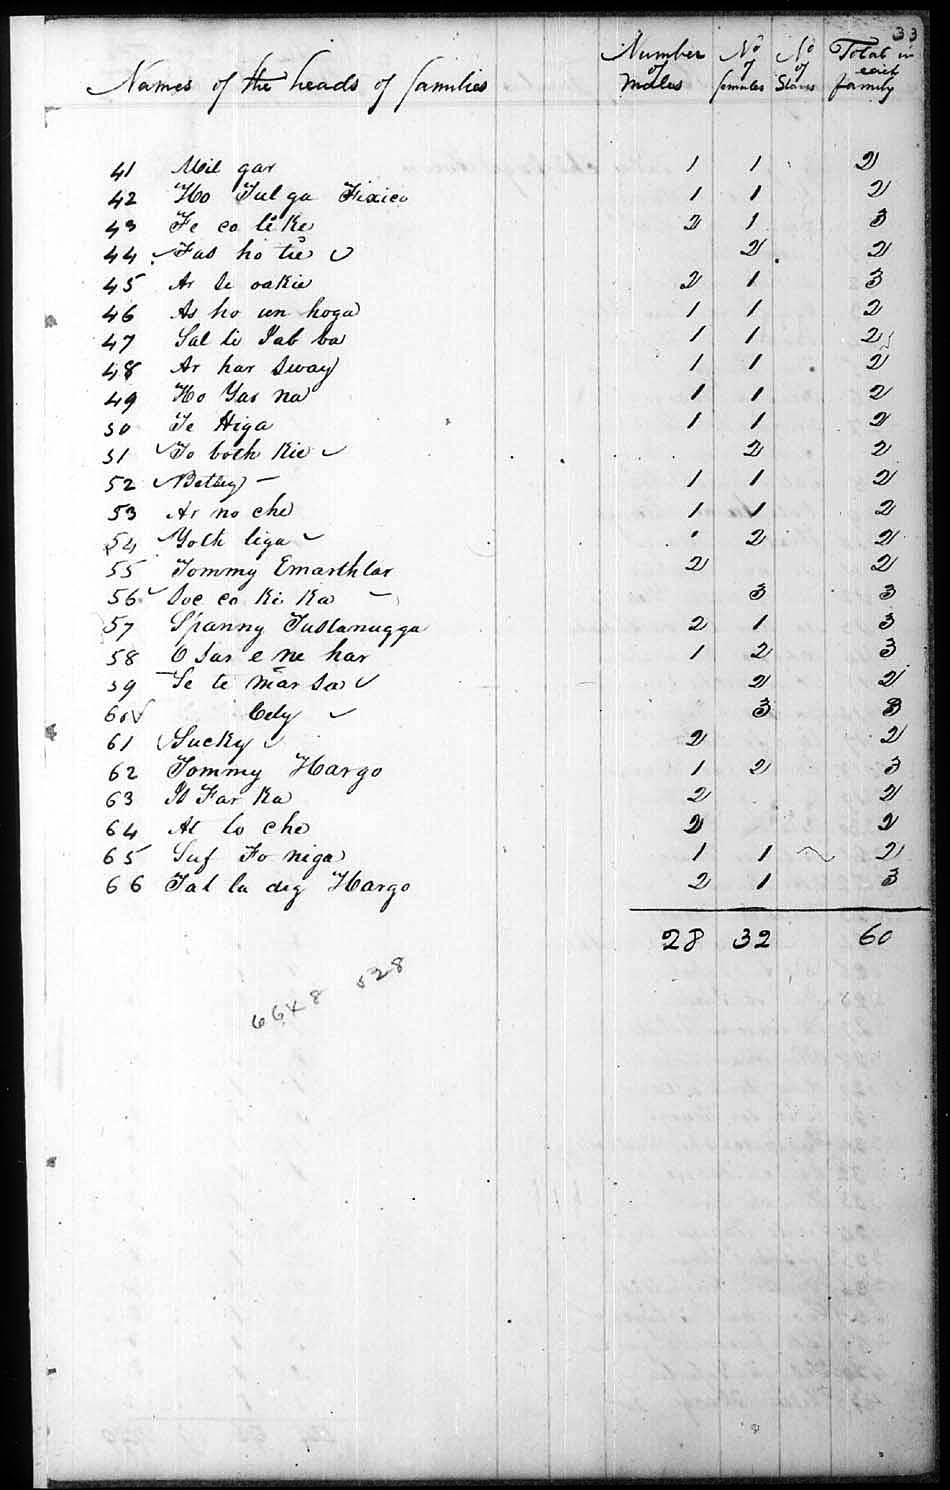 33
Names of the heads of families Number of males No of females No of Slaves Total in each family
41 Mil gar 1 1 2
42 Ho Tul ga Fixico 1 1 2
43 Te co li ke 2 1 3
44 Fas ho tie 2 2
45 Ar se oakie 2 1 3
46 As ho un hoga 1 1 2
47 Sal li Tab ba 1 1 2
48 Ar har Sway 1 1 2
49 Ho Yar na 1 1 2
50 Te Higa 1 1 2
51 To both Kie 2 2
52 Betley 1 1 2
53 Ar no che 1 1 2
54 Yoth liga 2 2
55 Tommy Emarthlar 2 2
56 Soc co Ki Ka 3 3
57 Spanny Tustanugga 2 1 3
58 O Sar e ne har 1 2 3
59 Se te mar sa 2 2
60 Cely 3 3
61 Sucky 2 2
62 Tommy Hargo 1 2 3
63 Is Far Ka 2 2
64 At lo che 2 2
65 Suf Fo niga 1 1 2
66 Tal la dig Hargo 2 1 3
28 32 60
6648 528